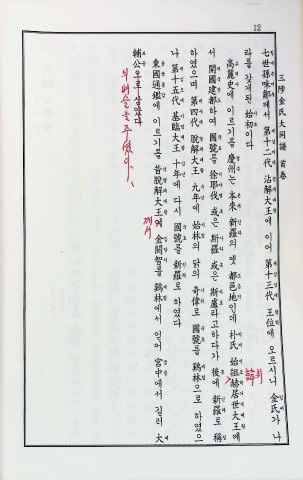 12
三陟金氏大同譜 首卷
七世孫味鄒께서 第十二代 沾解大王에 이어 第十三代 王位에 오르시니 金氏가 나
라를 갖게된 始初이다
高麗史에 이르기를 慶州는 本來 新羅의 옛 都邑地인데 朴氏 始祖赫居世大王께
서 開國建都하여 國號를 徐耶伐 或은 斯羅 或은 斯盧라고하다가 後에 新羅로 稱
하였으며 第四代 脫解大王 九年에 始林의 닭의 奇偉로 國號를 鷄林으로 하였으
나 第十五代 基臨大王 十年에 다시 國號를 新羅로 하였다
東國通鑑에 이르기를 昔脫解大王이 金閼智를 鷄林에서 얻어 宮中에서 길러 大
輔公으로 삼았다
께서
벼슬을 주셨다
諱 휘